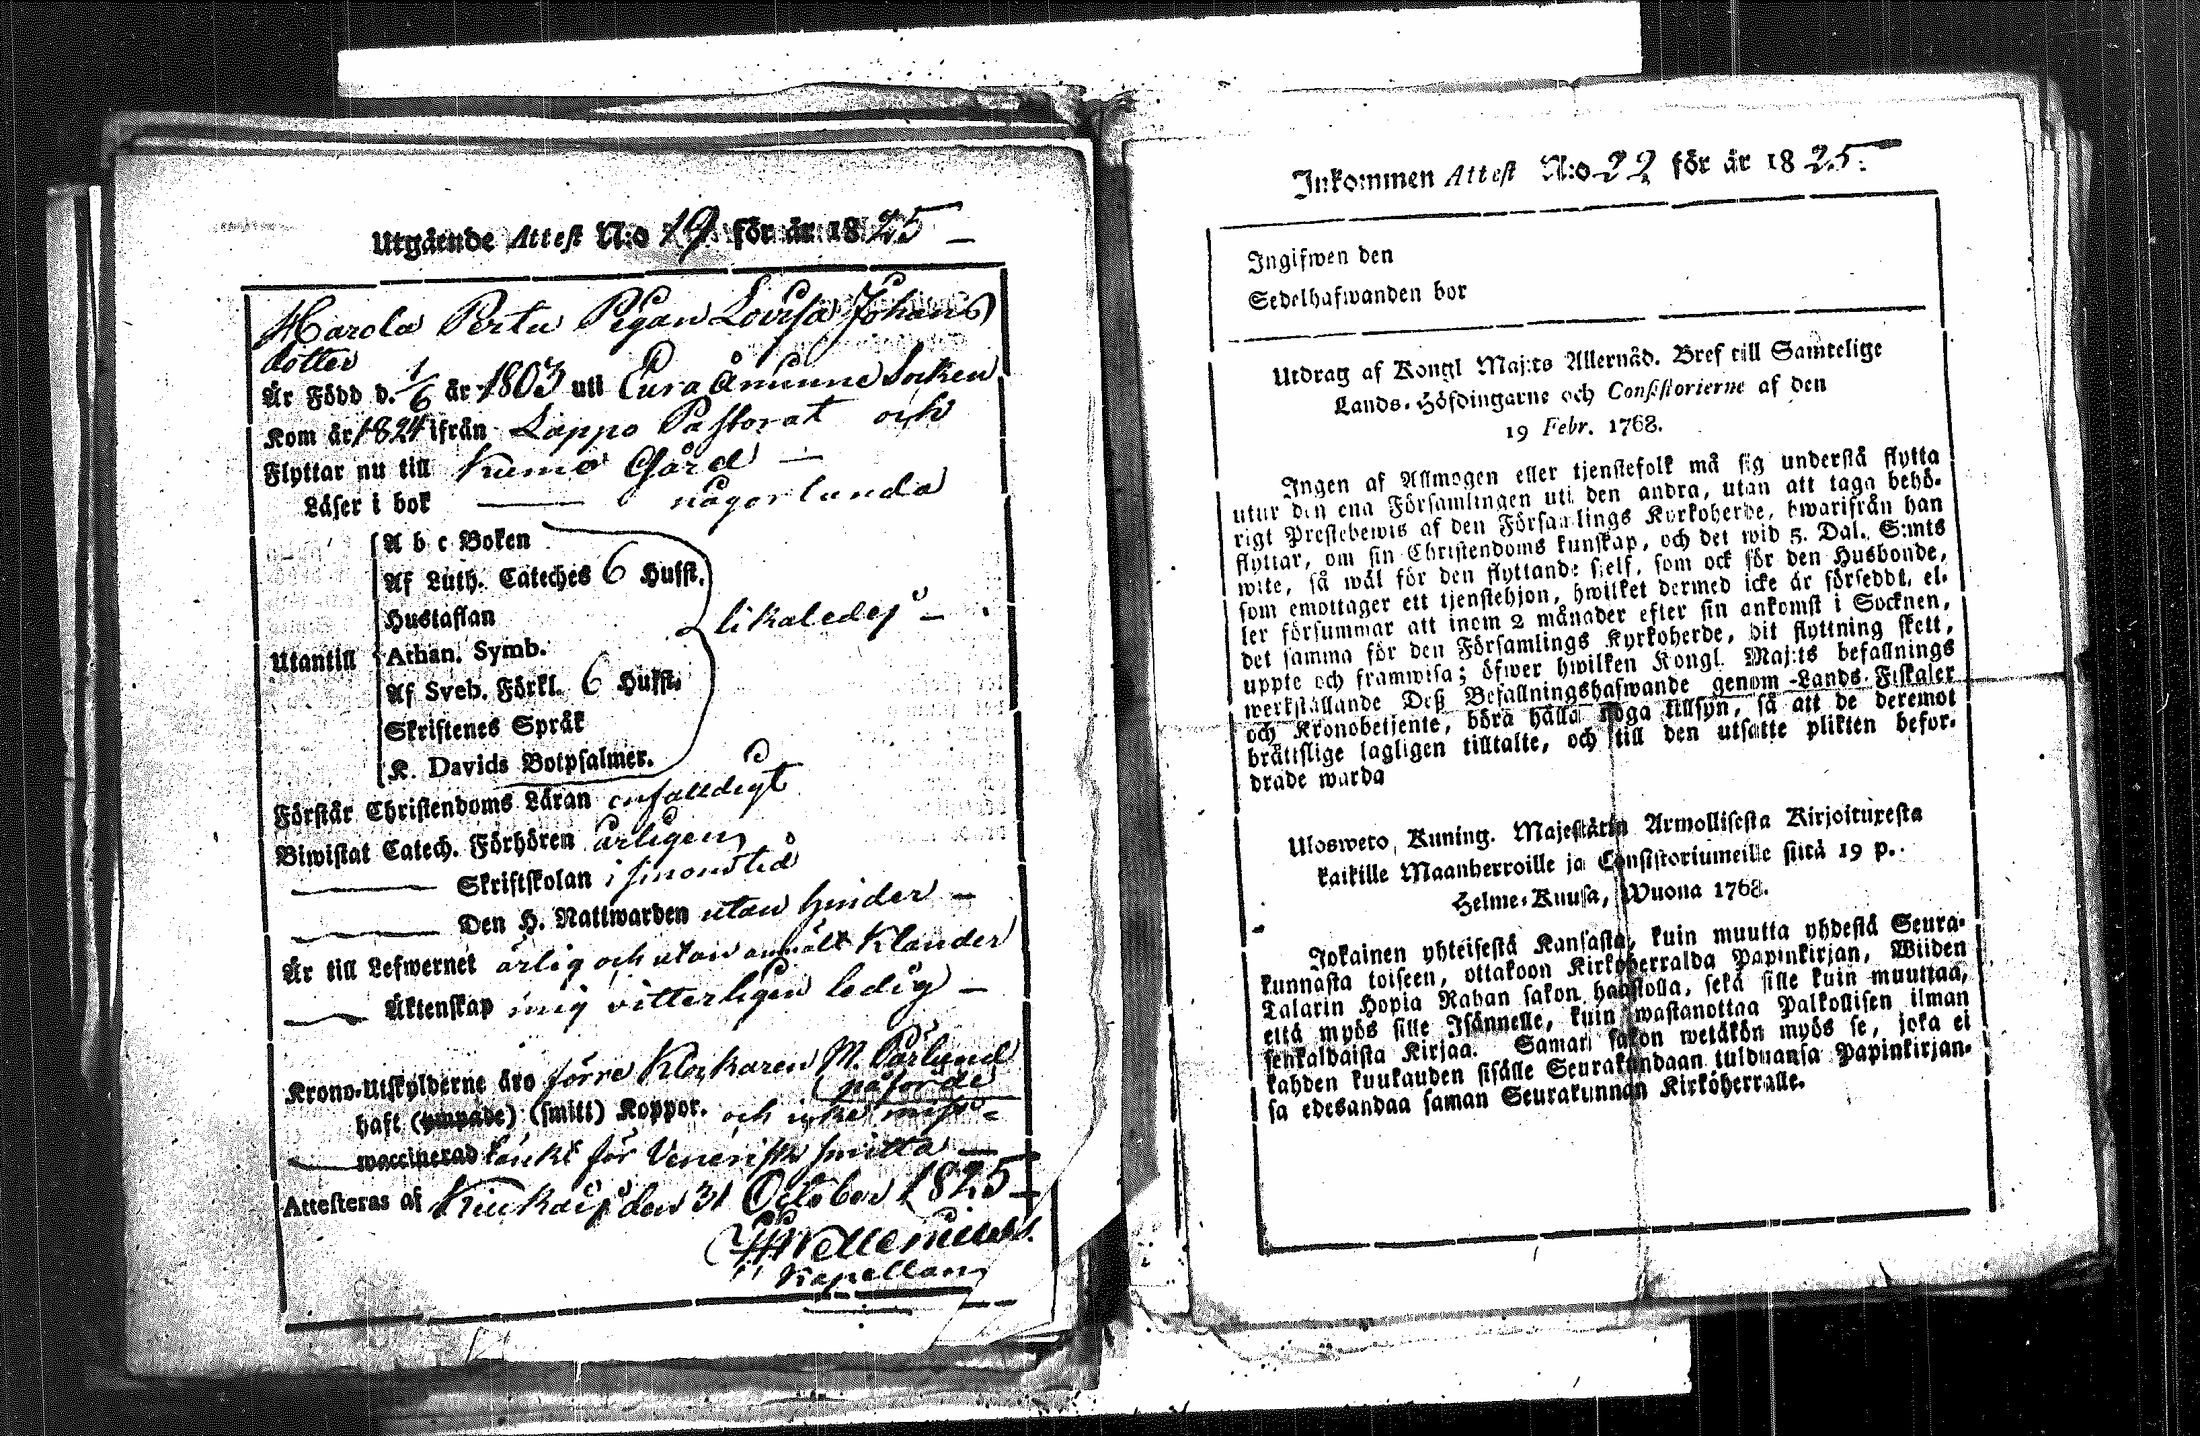 Utgående Attest N:o 19 för år 1825
Harola Pertu Pigan Lovisa Johans
dotter
Är Född d. 1/6 år 1803 uti Eura åminne Socken
Kom år 1824 ifrån Lappo Pastorat och
Flyttar nu till Kumo Gård —
Läser i bok — någorlunda
A b c Boken
Af Luth. Cateches 6 Hufst.
Hustaflan
likaledes —
Utantill
Athan. Symb.
Af Sveb. Förkl. 6 Hufst.
Skriftenes Språk
K. Davids Botpsalmer.
Förstår Christendoms Läran enfalldigt
Biwistat Catech. Förhören årligen
Skriftskolan i sinom tid
Den H. Nattwarden utan hinder —
Är till Lefwernet ärlig och utan anmält Klander
Äktenskap mig vitterligen ledig —
Krono-Utskylderne äro förre Klockaren M. Pärlund
påförde
haft (ympade) (smitt) Koppor. och icke miss-
waccinerad tänkt för Venerisk smitta —
Attesteras af Kiukais den 31 October 1825
Kapellan
Inkommen Attest N:o 22 för år 1825.
Ingifwen den
Sedelhafwanden bor
Utdrag af Kongl Maj:ts Allernåd. Bref till Samtelige
Lands-Höfdingarne och Consistorierne af den
19 Febr. 1768.
Ingen af Allmogen eller tjenstefolk må sig understå flytta
utur den ena Församlingen uti den andra, utan att taga behö-
rigt Prestebewis af den Församlings Kyrkoherde, hwarifrån han
flyttar, om sin Christendoms kunskap, och det wid 5. Dal. S:mts
wite, så wäl för den flyttande sjelf, som ock för den Husbonde,
som emottager ett tjenstehjon, hwilket dermed icke är försedt, el-
ler försummar att inom 2 månader efter sin ankomst i Socknen,
det samma för den Församlings Kyrkoherde, dit flyttning skett,
uppte och framwisa; öfwer hwilken Kongl. Maj:ts befallnings
werkställande Deß Befallningshafwande genom Lands-Fiskaler
och Kronobetjente, böra hålla noga tillsyn, så att de deremot
brättslige lagligen tilltalte, och till den utsatte plikten befor-
drade warda
Ulosweto, Kuning. Majestätin Armollisesta Kirjoituxesta
kaikille Maanherroille ja Consistoriumeille siitä 19 p.
Helme-Kuusa, Wuona 1768.
Jokainen yhteisestä Kansasta, kuin muutta yhdestä Seura-
kunnasta toiseen, ottakoon Kirkoherralda Papinkirjan, Wiiden
Talarin Hopia Rahan sakon haastolla, sekä sille kuin muuttaa,
että myös sille Isännelle, kuin wastanottaa Palkollisen ilman
senkaldaista Kirjaa. Saman sakon wetäkön myös se, joka ei
kahden kuukauden sisälle Seurakundaan tulduansa Papinkirjan-
sa edesandaa saman Seurakunnan Kirköherralle.